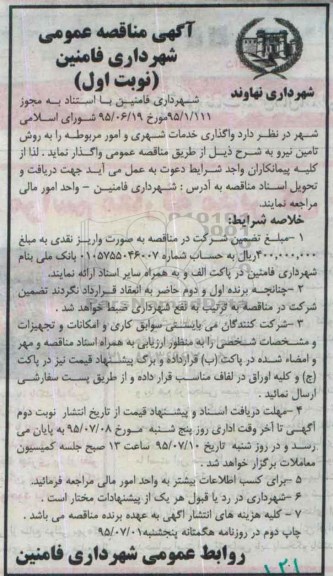 آگهی مناقصه عمومی
شهرداری فامنین
(نوبت اول)
شهرداری نهاوند
شهرداری فامنین با استناد به مجوز
۹۵/۱/۱۱۱مورخ ۹۵/۰۶/۱۹ شورای اسلامی
شهر در نظر دارد واگذاری خدمات شهری و امور مربوطه را به روش
تامین نیرو به شرح ذیل از طریق مناقصه عمومی واگذار نماید . لذا از
کلیه پیمانکاران واجد شرایط دعوت به عمل می آید جهت دریافت و
تحویل اسناد مناقصه به آدرس : شهرداری فامنین - واحد امور مالی
مراجعه نمایند.
خلاصه شرایط:
۱-مبلغ تضمین شرکت در مناقصه به صورت واریز نقدی به مبلغ
۴۰۰,۰۰۰,۰۰۰ریال به حساب شماره ۰۱۰۵۷۵۵۰۴۶۰۰۷ بانک ملی بنام
شهرداری فامنین در پاکت الف و به همراه سایر اسناد ارائه نمایند.
۲-چنانچه برنده اول و دوم حاضر به انعقاد قرارداد نگردند تضمین
شرکت در مناقصه به ترتیب به نفع شهرداری ضبط خواهد شد .
۳-شرکت کنندگان می بایستی سوابق کاری و امکانات و تجهیزات
و مشخصات شخصی را به منظور ارزیابی به همراه اسناد مناقصه و مهر
و امضاء شده در پاکت (ب) قرارداده و برگ پیشنهاد قیمت نیز در پاکت
(ج) و کلیه اوراق در لفاف مناسب قرار داده و از طریق پست سفارشی
ارسال نمائید .
۴-مهلت دریافت اسناد و پیشنهاد قیمت از تاریخ انتشار نوبت دوم
آگهی تا آخر وقت اداری روز پنج شنبه مورخ ۹۵/۰۷/۰۸ به پایان می
رسد و در روز شنبه تاریخ ۹۵/۰۷/۱۰ ساعت ۱۳ صبح جلسه کمیسیون
معاملات برگزار خواهد شد .
۵-برای کسب اطلاعات بیشتر به واحد امور مالی مراجعه فرمائید.
۶-شهرداری در رد یا قبول هر یک از پیشنهادات مختار است .
۷- کلیه هزینه های انتشار آگهی به عهده برنده مناقصه می باشد .
چاپ دوم در روزنامه هگمتانه پنجشنبه ۹۵/۰۷/۰۱
روابط عمومی شهرداری فامنین
۱۲۱